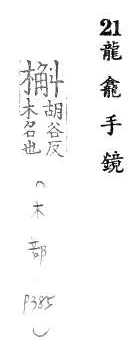 21龍龕手鏡
槲胡谷反
木名也
(木部 P385)